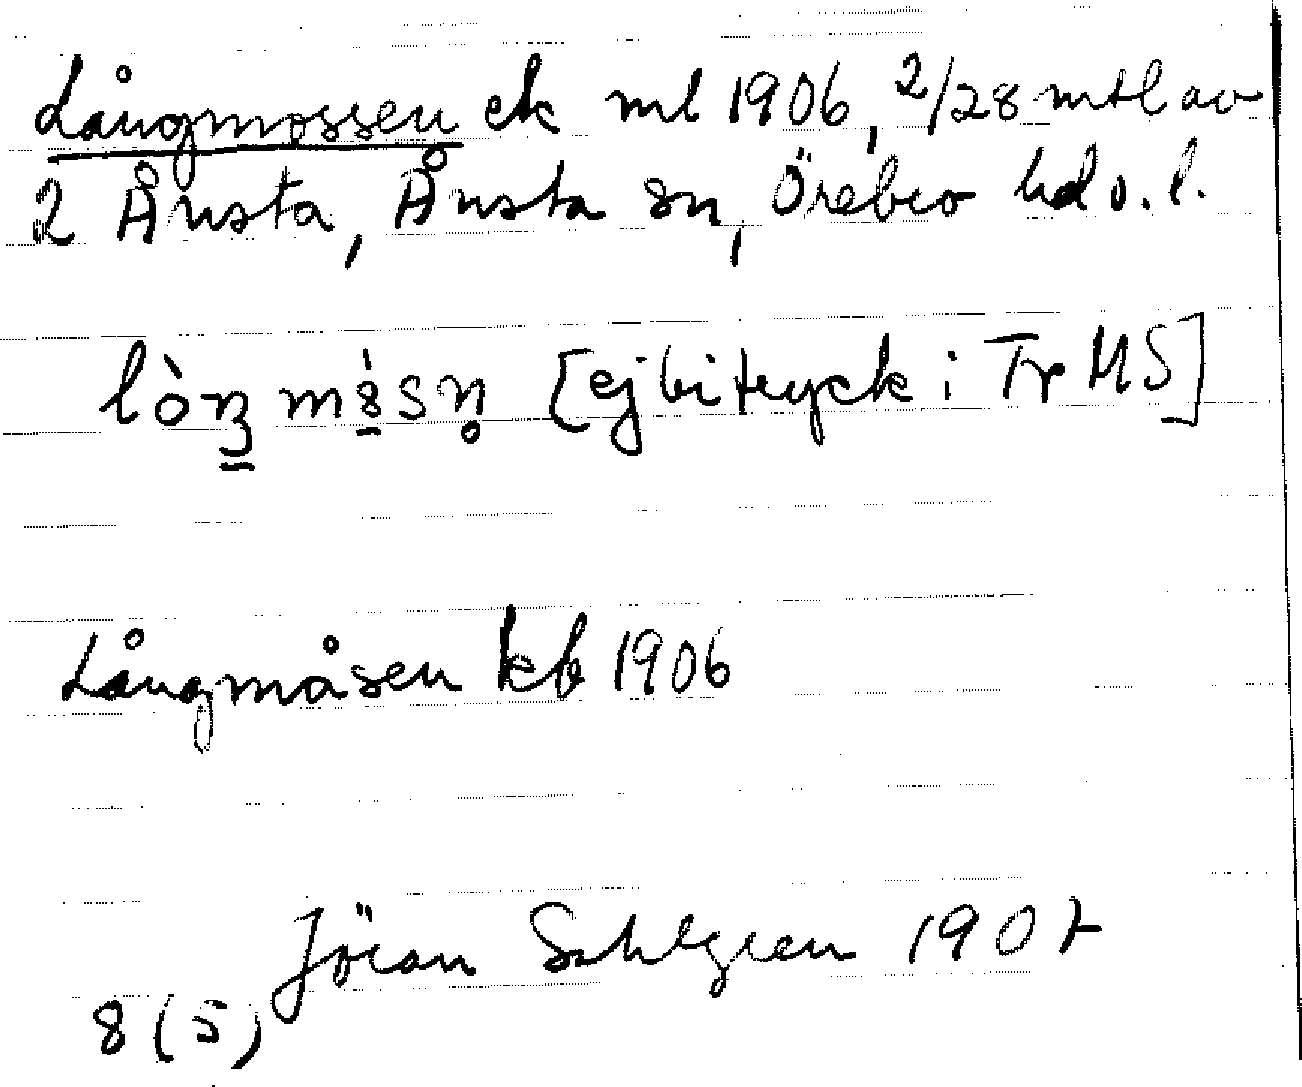 Långmossen ek ml 1906, 2/28 mtl av
2 Ånsta, Ånsta sn, Örebro hd o. l.
lòŋ mɞ́sn̥ [ej bitryck i Tr MS]
Långmåsen kb 1906
Jöran Sahlgren 1907
8 (5)